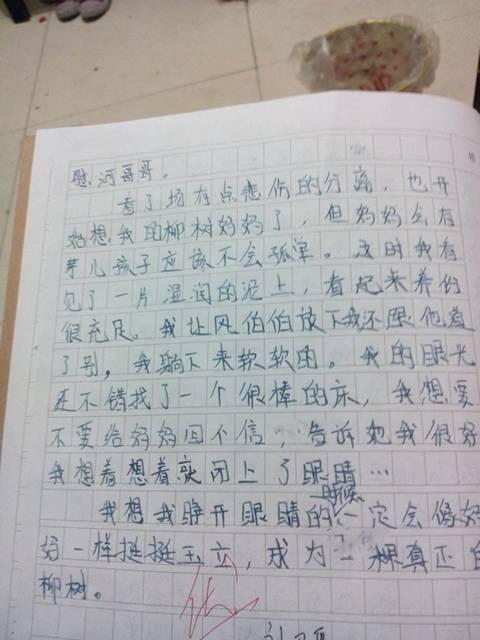 慰河哥哥。
看了场有点悲伤的分离，也开
始想我的柳树妈妈了，但妈妈会有
芽儿孩子应该不会孤单。这时我看
见了一片湿润的泥土，看起来养份
很充足。我让风伯伯放下我还跟他道
了别，我躺下来软软的。我的眼光
还不错找了一个很棒的床，我想要
不要给妈妈回个信，告诉她我很好
我想着想着就闭上了眼睛…
我想我睁开眼睛的时候一定会像妈
妈一样挺挺玉立，成为一棵真正的
柳树。